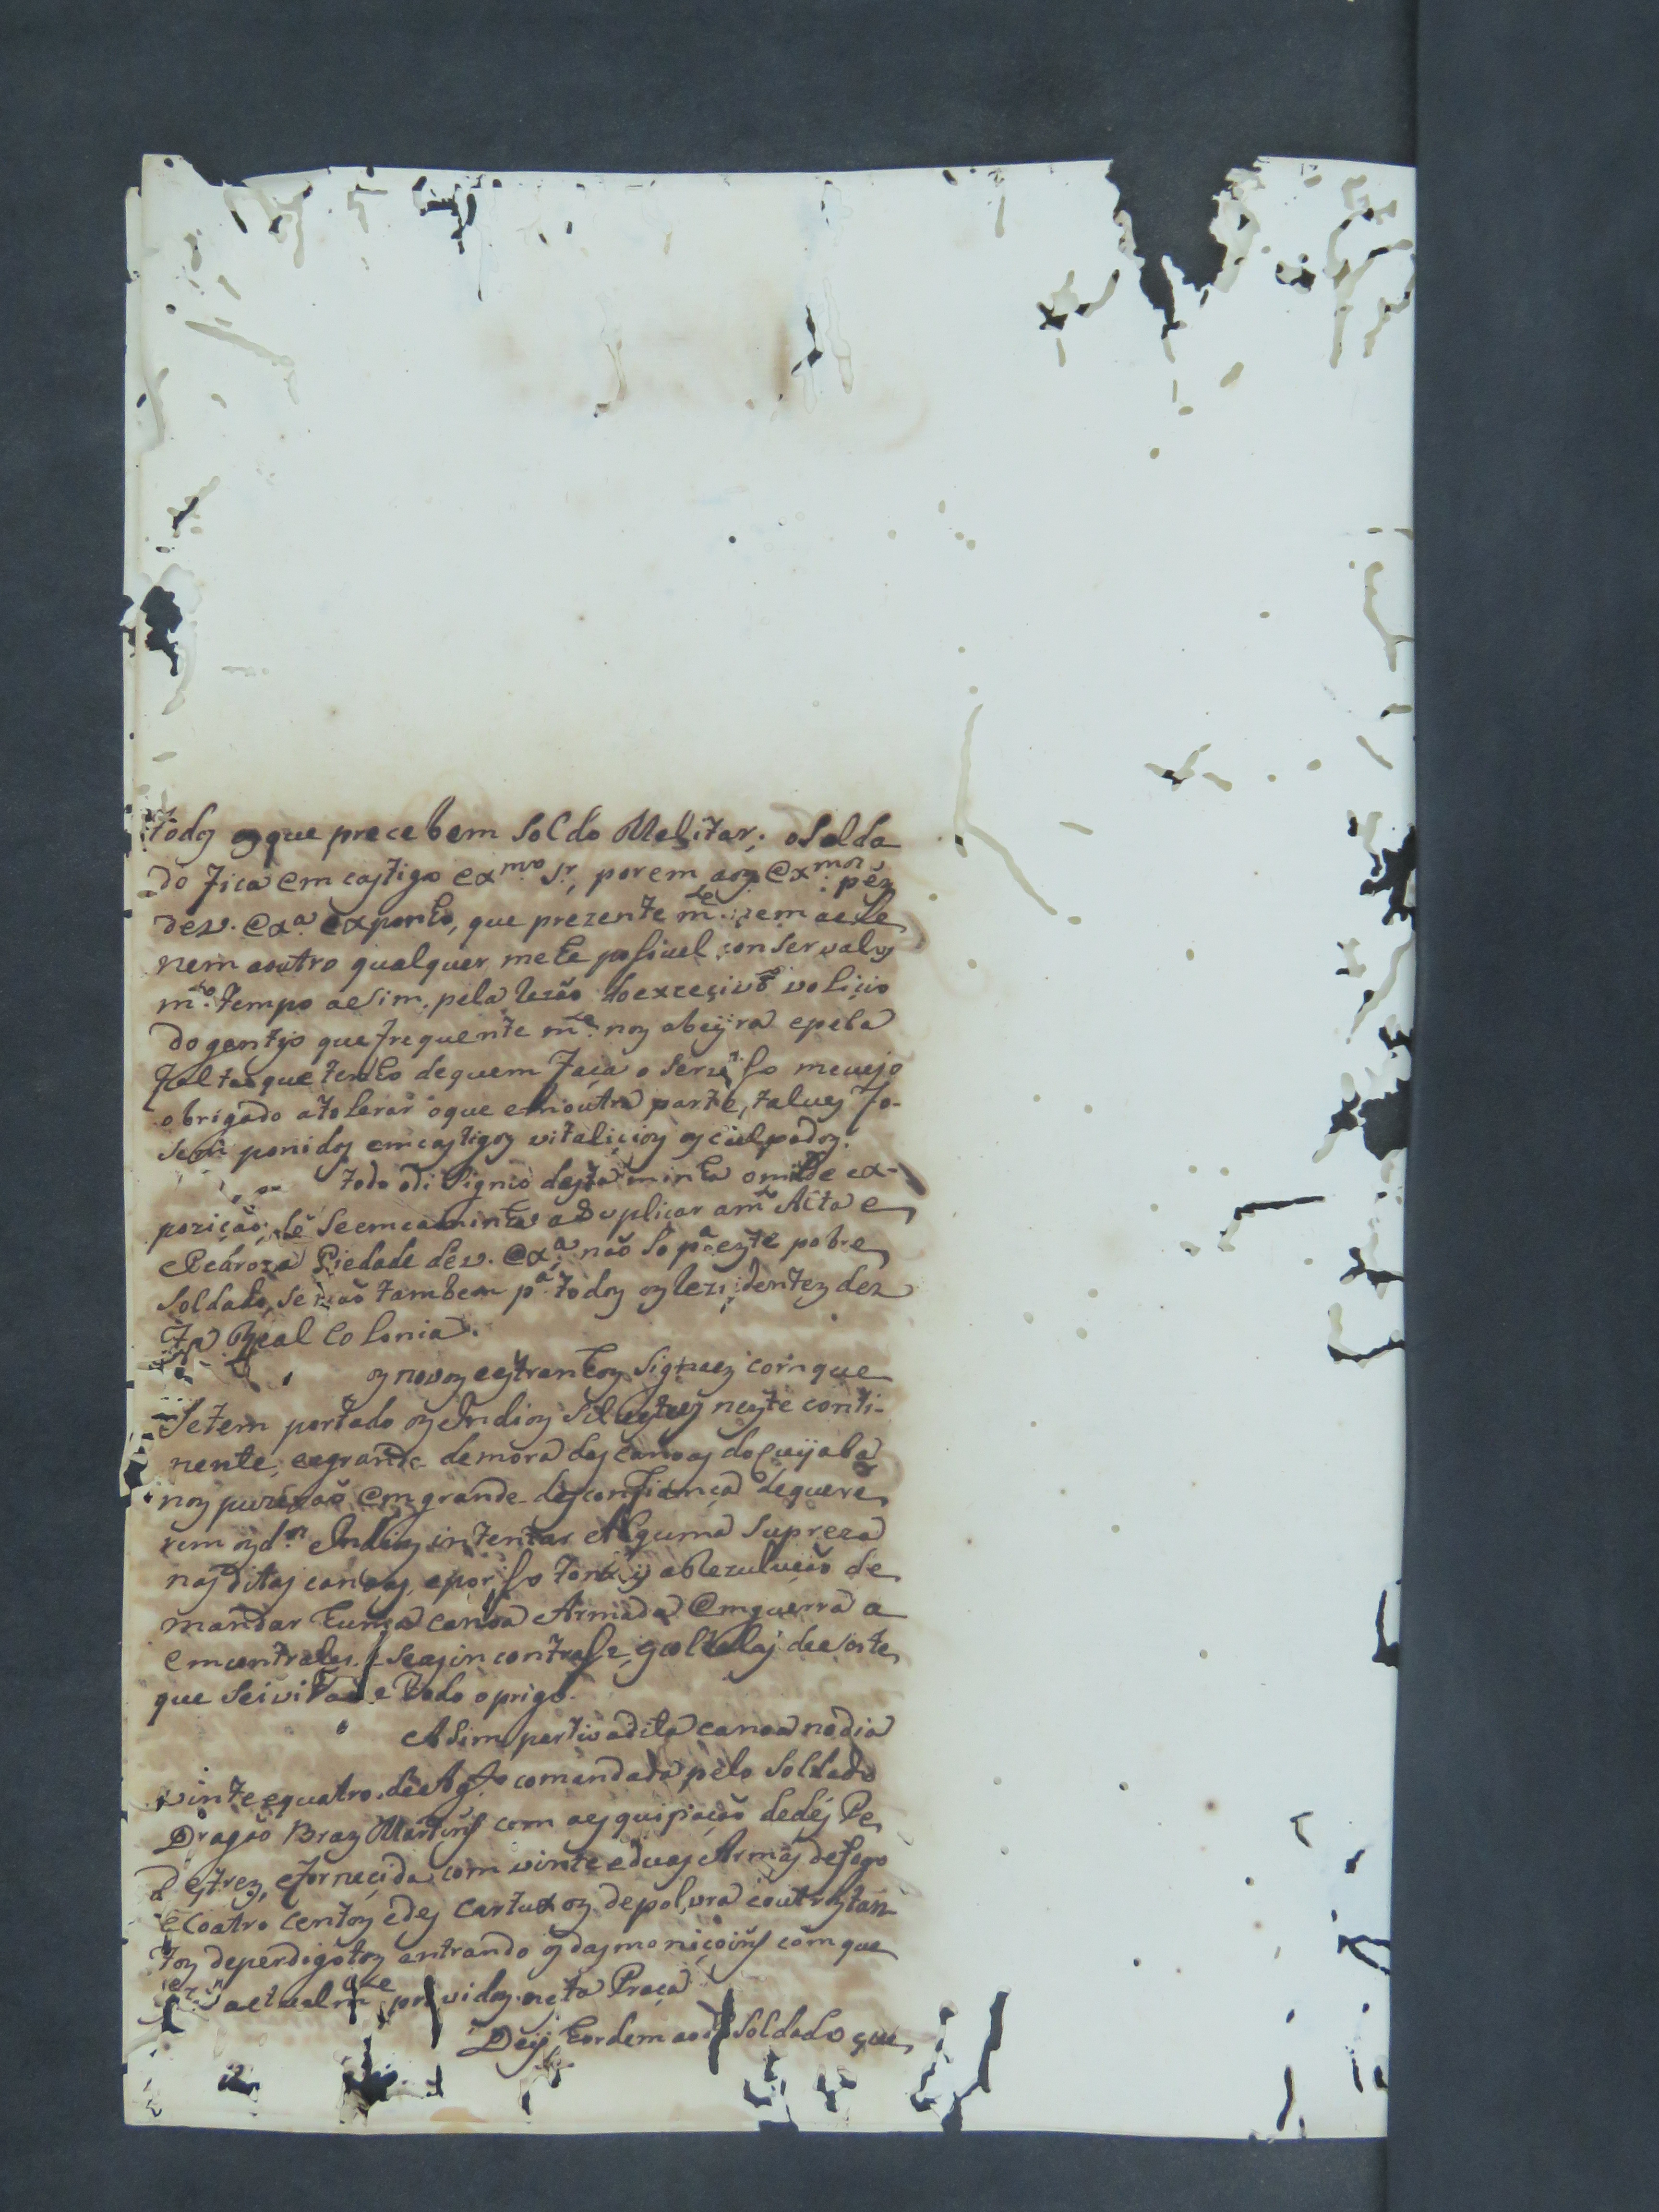 todos os que precebem Soldo Melitar; oSolda
do fica em castigo exmo Sr., porem aos Exmos pés
de v. Exa exponho, que prezentemte. nem aele
nem aoutro qualquer me he posivel conservalos
mto. tempo aesim, pela rezão do excecivo
do gentyo que frequentemte. nos abeyra epela
falta que tenho dequem faça o Servisso mevejo
obrigado atolerar oque emoutra parte, talves fo-
sem ponidos emcastigos vitalicios os culpados.
todo odisignio desta minha omilde ex-
pozição, hé Seemcaminha aSuplicar am.to Alta e
Pedroza Piedade de v. Exa. não So pa. este pobre
Soldado, Senão tambem pa. todos os rezidentes des
ta Real Colonia.
os novos eestranhos Signaes com que
Setem portado os Indios Silvestres neste conti-
nente, eagrande demora das canoas do Cuyaba
nos puzerão Em grande desconfiança dequere
rem osds. Indios intentar Alguma Supreza
nas ditas canoas, eporisso tomey aRezulução de
mandar huma canoa Armada Emguerra a
Emcontralas, e Seasincontrase, escoltalas desorte
que Seivitase todo oprigo.
ASim partio adita canoa nodia
vinte equatro de Agto. comandada pelo Soldado
Dragão Braz Martins com aesquipação dedes Pe
destres, efornecida com vinte eduas Armas defogo
e Coatro centos edes Cartuxos depolvra eoutrostan-
tos deperdigotos entrando as das moniçoins com que
actualmte. providos nesta Praça
Dey hordem aodo. Soldado que